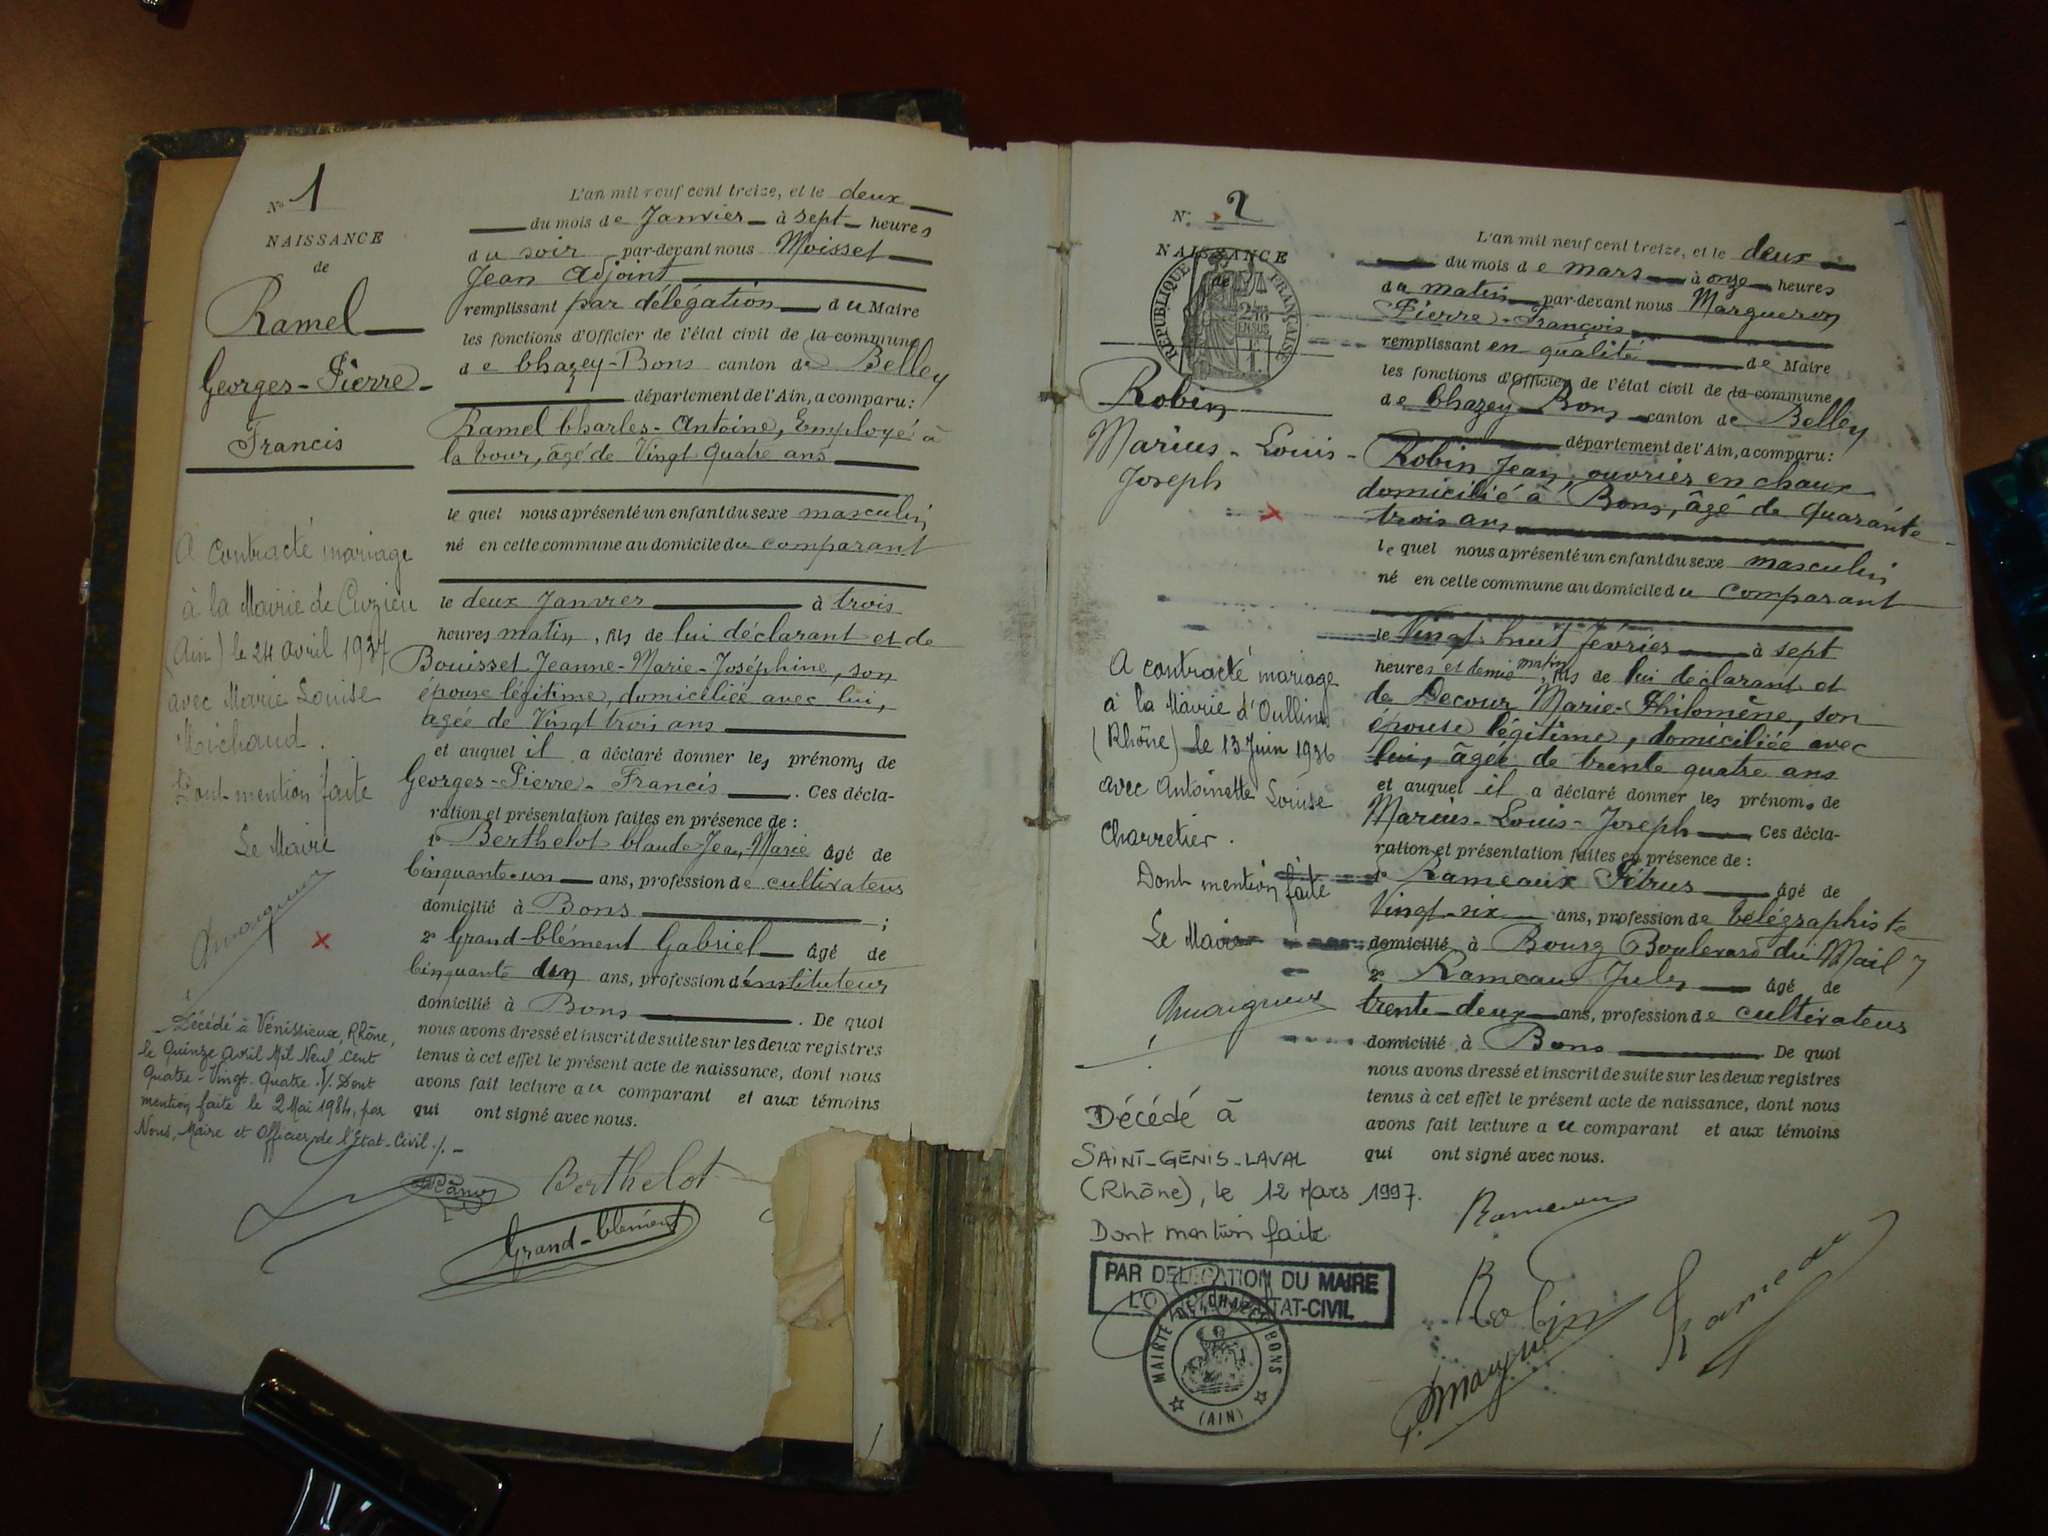 N° 1
NAISSANCE
de
Ramel
Georges-Pierre-
Francis
A contracté mariage
à la Mairie de Cuzieu
(Ain) le 24 avril 1937
avec Marie Louise
Michaud.
Dont mention faite
Le Maire
Décédé à Vénissieux, Rhône,
le Quinze Avril Mil Neuf Cent
Quatre-Vingt-Quatre ./. Dont
mention faite le 2 Mai 1984, par
Nous, Maire et Officier de l'Etat-Civil ./.
L'an mil neuf cent treize, et le deux
du mois de Janvier à sept heures
du soir par-devant nous Moisset
Jean Adjoint
remplissant par délégation du Maire
les fonctions d'Officier de l'état civil de la commune
de Chazey-Bons canton de Belley
département de l'Ain, a comparu:
Ramel Charles-Antoine, Employé à
la cour, âgé de Vingt quatre ans
le quel nous a présenté un enfant du sexe masculin
né en cette commune au domicile du comparant
le deux Janvier à trois
heures matin, fils de lui déclarant et de
Bouisset Jeanne-Marie-Joséphine, son
épouse légitime, domiciliée avec lui,
agée de Vingt trois ans
et auquel il a déclaré donner les prénoms de
Georges-Pierre-Francis. Ces décla-
ration et présentation faites en présence de :
1° Berthelot Claude Jean-Marie âgé de
Cinquante-un ans, profession de cultivateur
domicilié à Bons ;
2° Grand-Clément Gabriel âgé de
Cinquante un ans, profession d'instituteur
domicilié à Bons. De quoi
nous avons dressé et inscrit de suite sur les deux registres
tenus à cet effet le présent acte de naissance, dont nous
avons fait lecture au comparant et aux témoins
qui ont signé avec nous.
Berthelot
Grand-Clément
N° 2
NAISSANCE
de
REPUBLIQUE FRANÇAISE
Robin
Marius-Louis-
Joseph
A contracté mariage
à la Mairie d'Oullins
(Rhône) le 13 Juin 1936
avec Antoinette Louise
Charretier.
Dont mention faite
Le Maire
Décédé à
SAINT-GENIS-LAVAL
(Rhône), le 12 Mars 1997.
Dont mention faite
PAR DELEGATION DU MAIRE
MAIRIE DE CHAZEY BONS
(AIN)
L'an mil neuf cent treize, et le deux
du mois de mars à onze heures
du matin par-devant nous Margueron
Pierre-François
remplissant en qualité de Maire
les fonctions d'Officier de l'état civil de la commune
de Chazey-Bons canton de Belley
département de l'Ain, a comparu:
Robin Jean, ouvrier en chaux
domicilié à Bons, âgé de quarante-
trois ans
le quel nous a présenté un enfant du sexe masculin
né en cette commune au domicile du comparant
le Vingt-huit février à sept
heures et demie matin, fils de lui déclarant et
de Decour Marie-Philomène, son
épouse légitime, domiciliée avec
lui, âgée de trente quatre ans
et auquel il a déclaré donner les prénoms de
Marius-Louis-Joseph Ces décla-
ration et présentation faites en présence de :
1° Rameaux Pétrus âgé de
Vingt-six ans, profession de télégraphiste
domicilié à Bourg Boulevard du Mail 7
2° Rameaux Jules âgé de
trente-deux ans, profession de cultivateur
domicilié à Bons De quoi
nous avons dressé et inscrit de suite sur les deux registres
tenus à cet effet le présent acte de naissance, dont nous
avons fait lecture au comparant et aux témoins
qui ont signé avec nous.
Rameaux
Robin